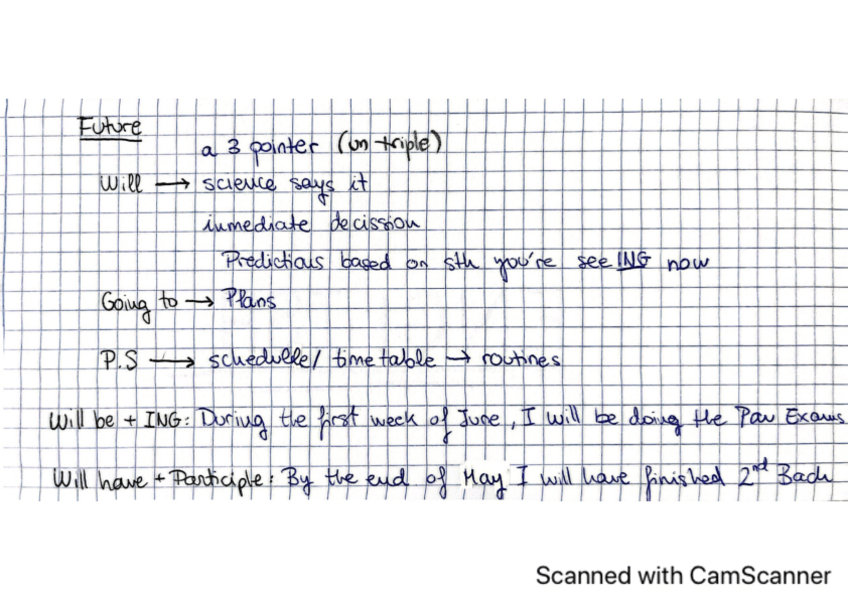 Future
a 3 pointer (un triple)
Will → science says it
inmediate decission
Predictions based on sth you're seeING now
Going to → Plans
P.S → schedulle/ time table → routines
Will be + ING: During the first week of June, I will be doing the Pau Exams
Will have + Participle: By the end of May I will have finished 2nd Bach
Scanned with CamScanner